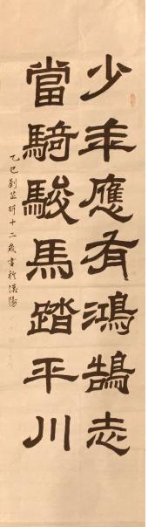 少年應有鴻鵠志
當騎駿馬踏平川
乙巳劉芸昕十二歲書於漢陽